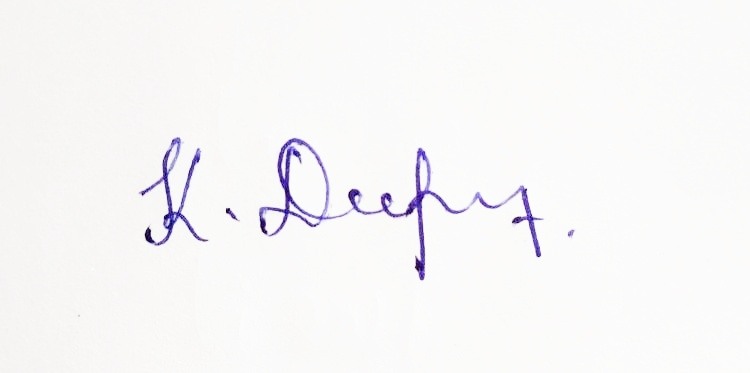 K. Deepu.